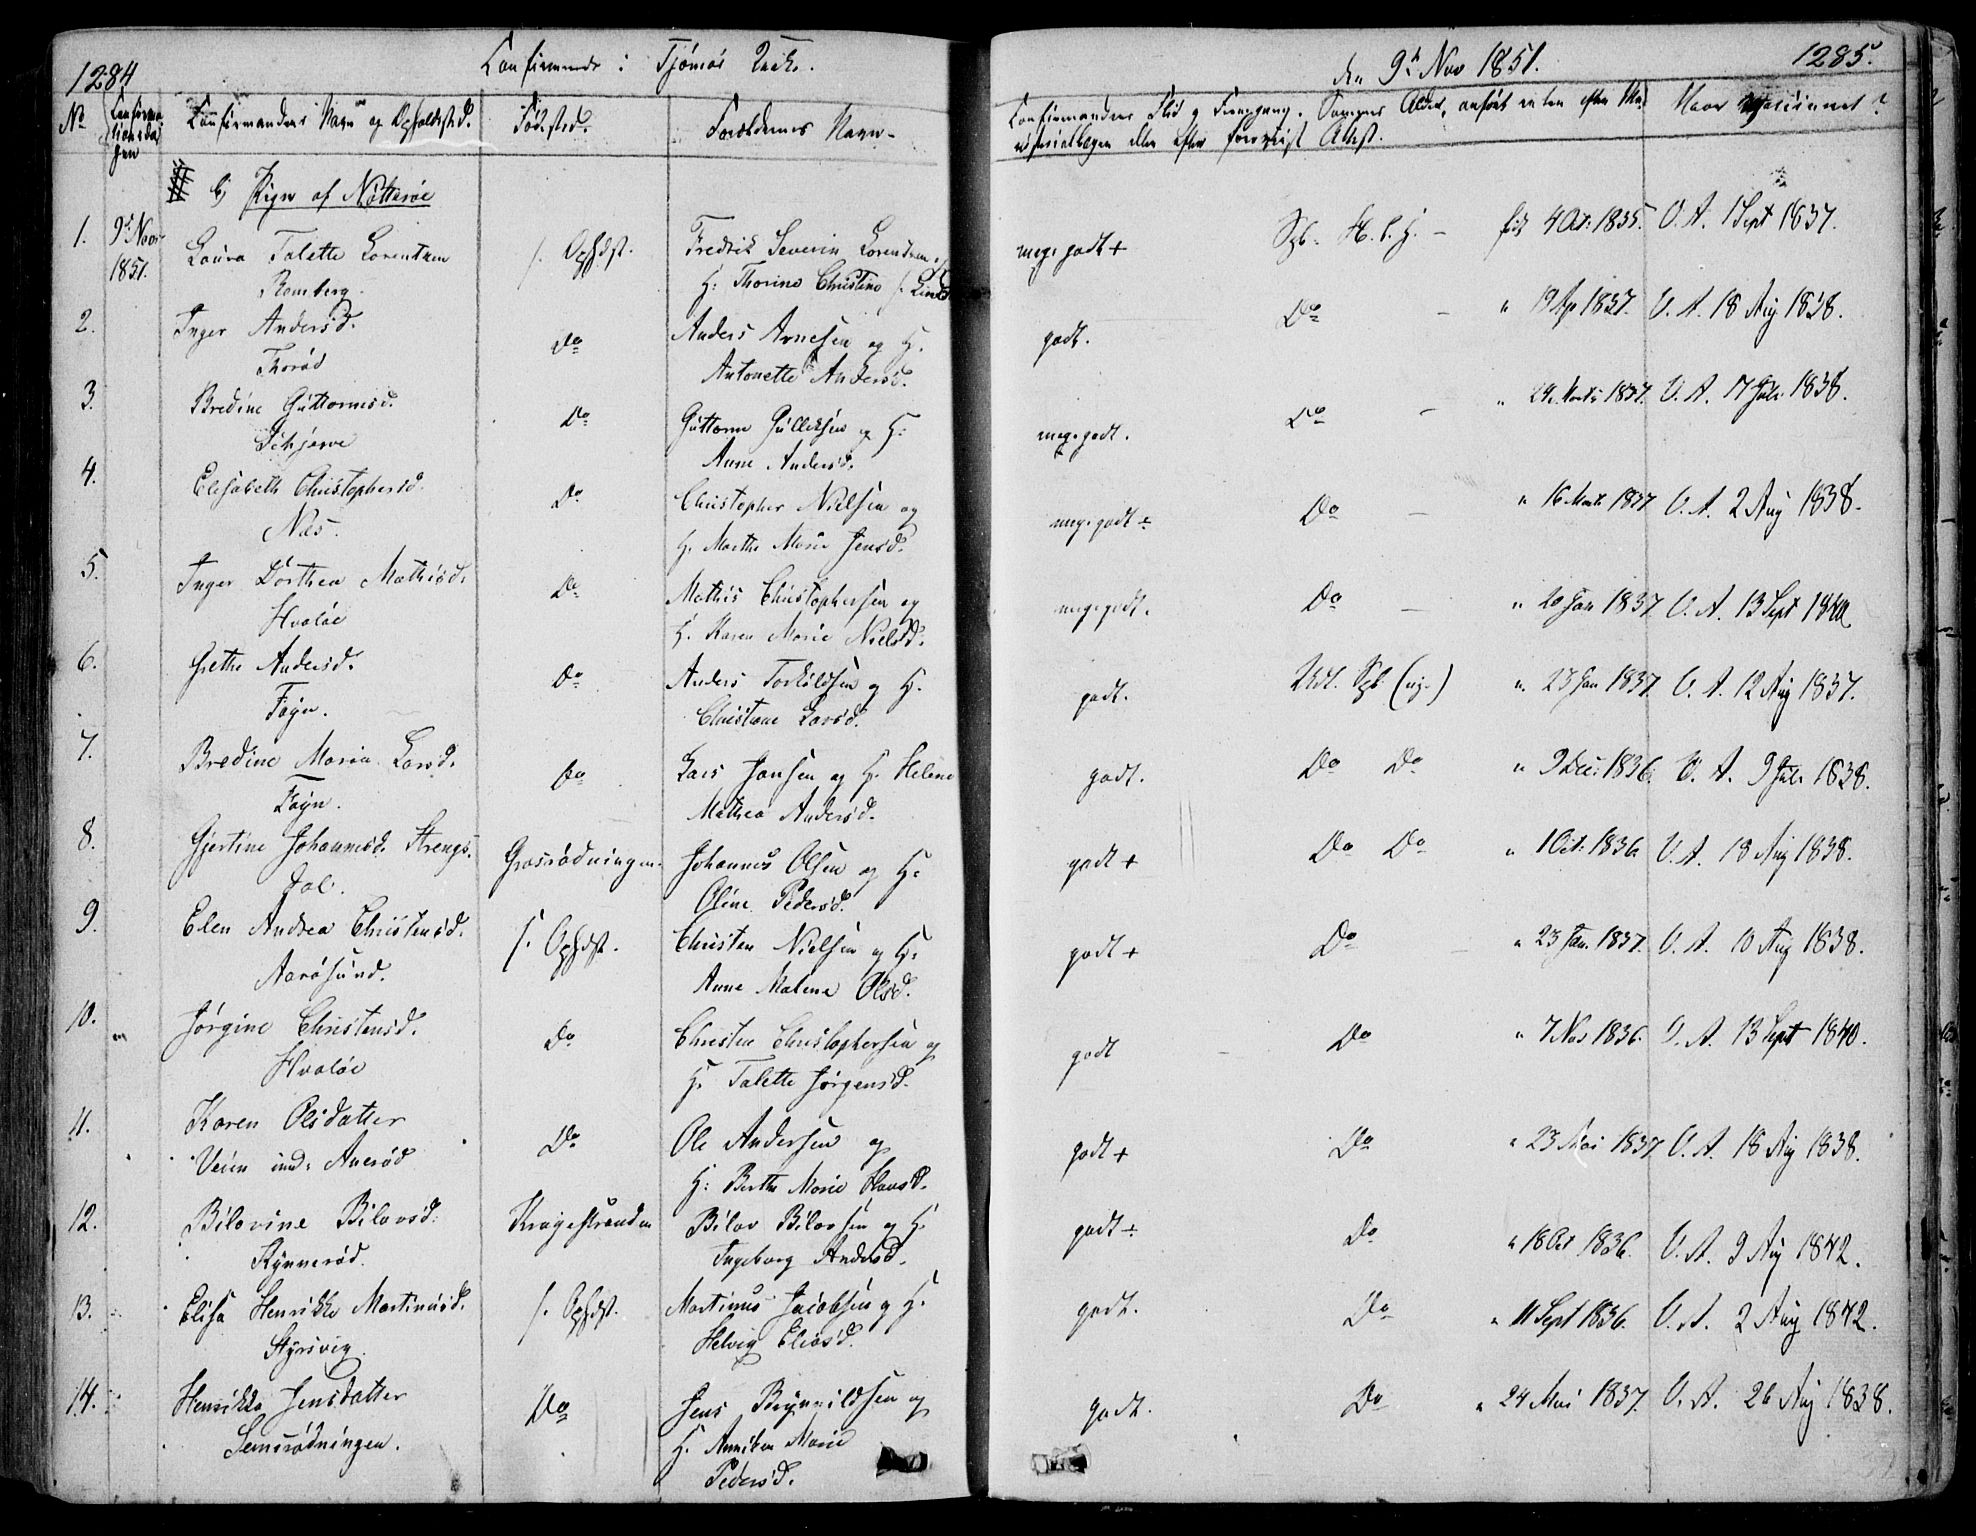 1284
Confirmerede i Tjømøs Kirke.
den 9de Nov 1851.
1285.
No
Confirmationsdagen
Confirmandens Navn og Opholdssted.
Fødested.
Forældrenes Navn.
Confirmandens Flid og Fremgang. Sammes Alder, anført enten efter Mi-
nisterialbogen eller efter foreviist Attest.
Naar vaccineret?
b) Piger af Nøtterøe
1. 9de Nov 1851. Laura Talette Lorentzen
Ramberg.
f. Ophdst.
Fredrik Severin Lorentzen og
H. Thorine Christine f. Lind
meg. godt +
Sgb. fød 4 Oct: 1835. V. A. 1 Sept 1837.
2. Inger Andersd.
Thorød
Do
Anders Arnesen og H.
Antonette Andersd.
godt.
Do - " 19 Ap 1837. V. A. 18 Aug 1838.
3. Bredine Guttormsd.
Schjerve
Do
Guttorm Gulliksen og H:
Anne Andersd.
meg. godt.
Do - " 1837. V. A. 17 Juli 1838.
4. Elisabeth Christophersd.
Næs.
Do
Christopher Nielsen og
H. Marthe Marie Jensd.
meg. godt ÷
Do - " 16 Marts 1837 V. A. 2 Aug 1838.
5. Inger Dorthea Mathisd.
Hvaløe
Do
Mathis Christophersen og
H. Karen Marie Nielsd.
meg. godt.
Do - " 20 Jan 1837 V. A. 13 Sept 1840.
6. Grethe Andersd.
Føyn.
Do
Anders Torkildsen og H.
Christiane Larsd.
godt.
Udt. Sgb. (rig.) " 23 Jan 1837. V. A. 12 Aug 1837.
7. Bredine Maria Larsd.
Føyn.
Do
Lars Jansen og H. Helene
Mathea Andersd.
godt.
Do Do " 9 Dec: 1836. V. A. 9 Juli 1838.
8. Gjertine Johannesd. Strengs-
dal.
Grosrødningen.
Johannes Olsen og H:
Oline Pedersd.
godt +
Do Do " 1 Oct: 1836. V. A. 18 Aug 1838.
9. Elen Andrea Christensd.
Aarøsund.
f. Ophdst.
Christen Nielsen og H:
Anne Malene Olsd.
godt +
Do " 23 Jan. 1837. V. A. 10 Aug 1838.
10. Jørgine Christensd.
Hvaløe
Do
Christen Christophersen og
H. Talette Jørgensd.
godt
Do " 7 Nov 1836. V. A. 13 Sept 1840.
11. Karen Olsdatter
Veien und: Aarød
Do
Ole Andersen og
H: Berthe Marie Hansd.
godt +
Do " 23 Mai 1837 V. A. 18 Aug 1838.
12. Bilovine Bilovsd.
Kynnerød.
Kragestranden
Bilov Bilovsen og H.
Ingeborg Andersd.
godt ÷
Do " 18 Oct 1836. V. A. 9 Aug 1842.
13. Elisa Henrikke Martinusd.
Styrsvig.
f. Ophdst.
Martinus Jacobsen og H.
Helvig Eliasd.
godt.
Do " 11 Sept 1836. V. A. 2 Aug 1842.
14. Henrikke Jensdatter
Semsrødningen.
Do
Jens Brynnildsen og
H. Anniken Marie
Pedersd.
godt.
Do " 24 Mai 1837. V. A. 26 Aug 1838.